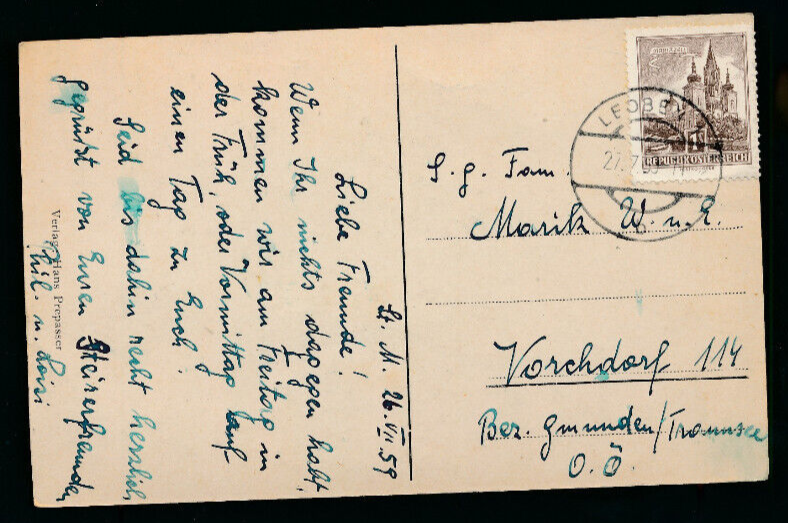 St. M. 26.VII.59
Liebe Freunde!
Wenn Ihr nichts dagegen habt,
kommen wir am Freitag in
der Früh, oder Vormittag auf
einen Tag zu Euch!
Seid bis dahin recht herzlich
gegrüßt von Euren Steirerfreunden
u. Loisi
Verlag Hans Prepasser
LEOBEN
27.7.59
REPUBLIK ÖSTERREICH
S. g. Fam.
Marik W. u. E.
Vorchdorf 114
Bez. Gmunden/Traunsee
O.Ö.